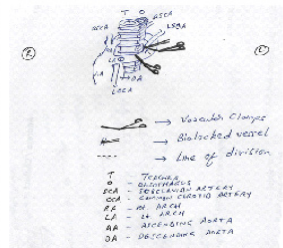 T O
RSCA
RCCA
LSCA
(R)
(L)
LA
DA
LCCA
→ Vascular Clamps
→ Bidocked vessel
→ Line of division
T - TRACHEA
O - OESOPHAGUS
SCA - SUBCLAVIAN ARTERY
CCA - COMMON CAROTID ARTERY
RA - Rt. ARCH
LA - Lt ARCH
AA - ASCENDING AORTA
DA - DESCENDING AORTA